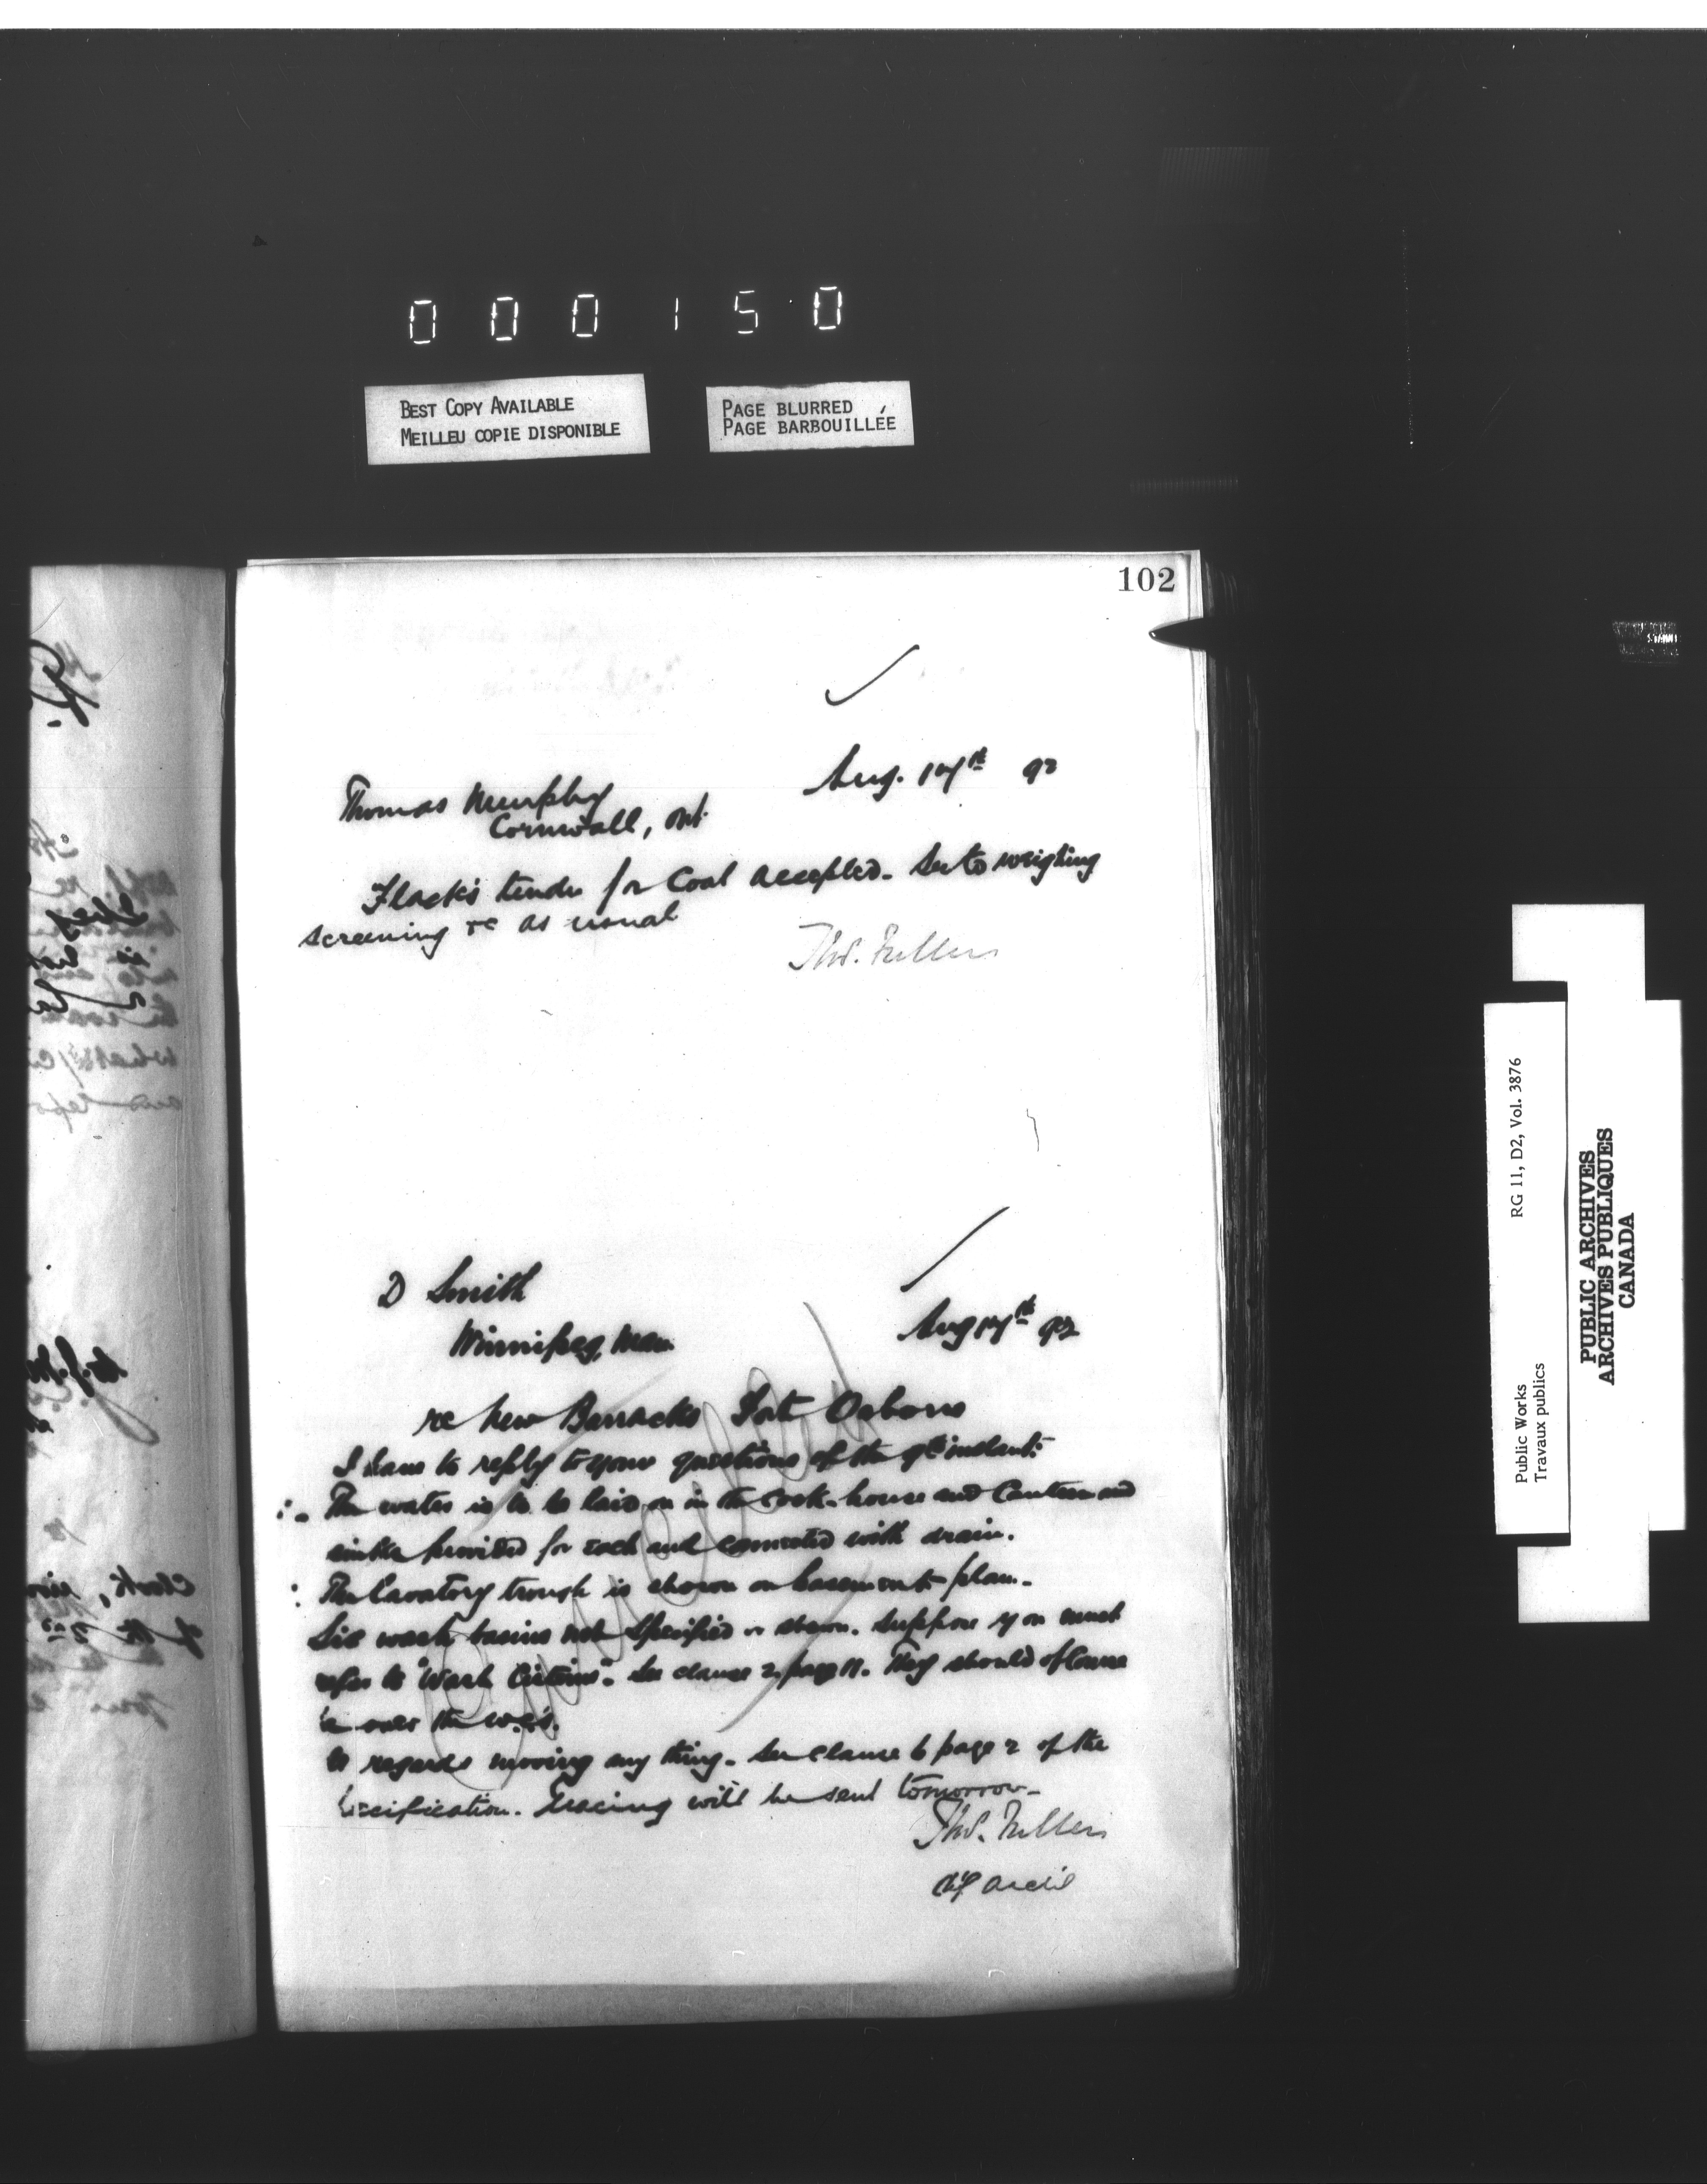 000150
BEST COPY AVAILABLE
MEILLEU COPIE DISPONIBLE
PAGE BLURRED
PAGE BARBOUILLÉE
102
Aug. 17th 92
Thomas Murphy
Cornwall, Ont.
Flack's tender for Coal accepted. See to weighing
screening &c as usual
Thos. Fuller
D Smith
Winnipeg, Man.
Aug 17th 92
re New Barracks Fort Osborne
I have to reply to your questions of the instant:
The water is to be laid on in the Cook-house and Canteen and
sinks provided for each and connected with drain.
The Lavatory trough is shown on basement plan.
Six wash basins not specified or shown. Suppose you must
refer to "Wash Cisterns". See clause 2, page 11. They should of course
be over the w.c's.
As regards moving any thing. See clause 6 page 2 of the
specification. Tracing will be sent tomorrow.
Thos. Fuller
RG 11, D2, Vol. 3876
Public Works
Travaux publics
PUBLIC ARCHIVES
ARCHIVES PUBLIQUES
CANADA